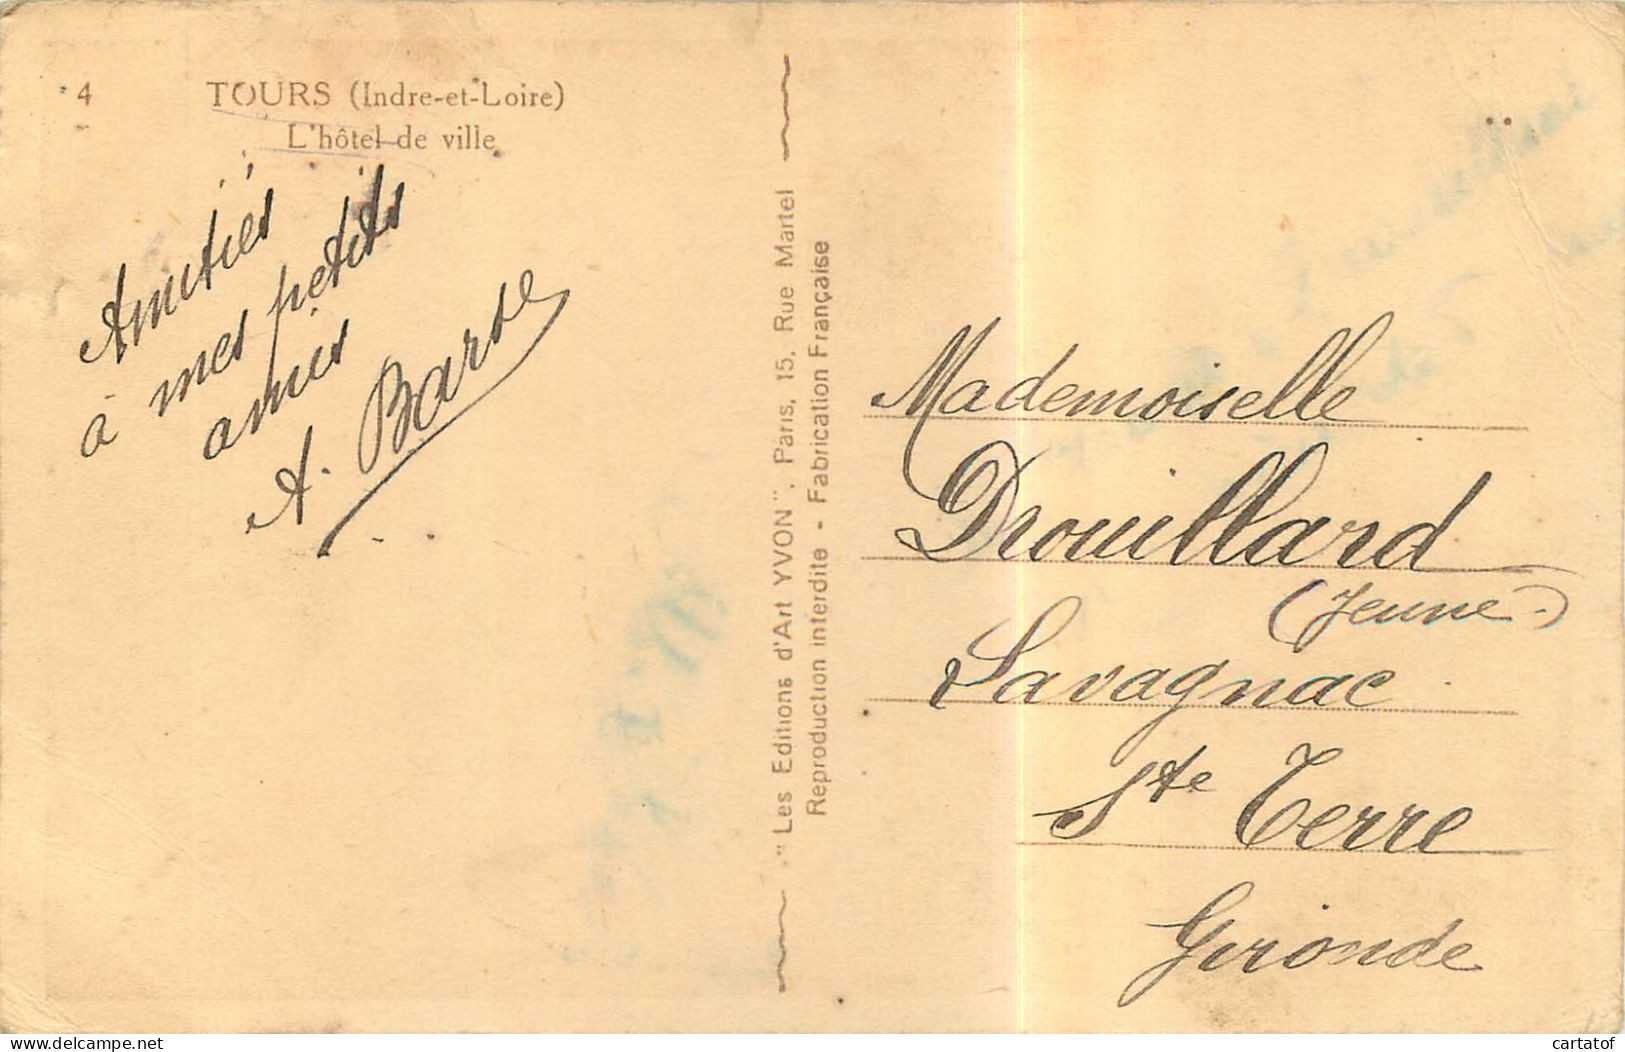 4 TOURS (Indre-et-Loire)
L'hôtel de ville
Amitiés
à mes petits
amis
A. Barse
"Les Editions d'Art YVON", Paris, 15, Rue Martel
Reproduction interdite - Fabrication Française
Mademoiselle
Drouillard
(Jeune)
Lavagnac
Ste Terre
Gironde
delcampe.net
cartatof